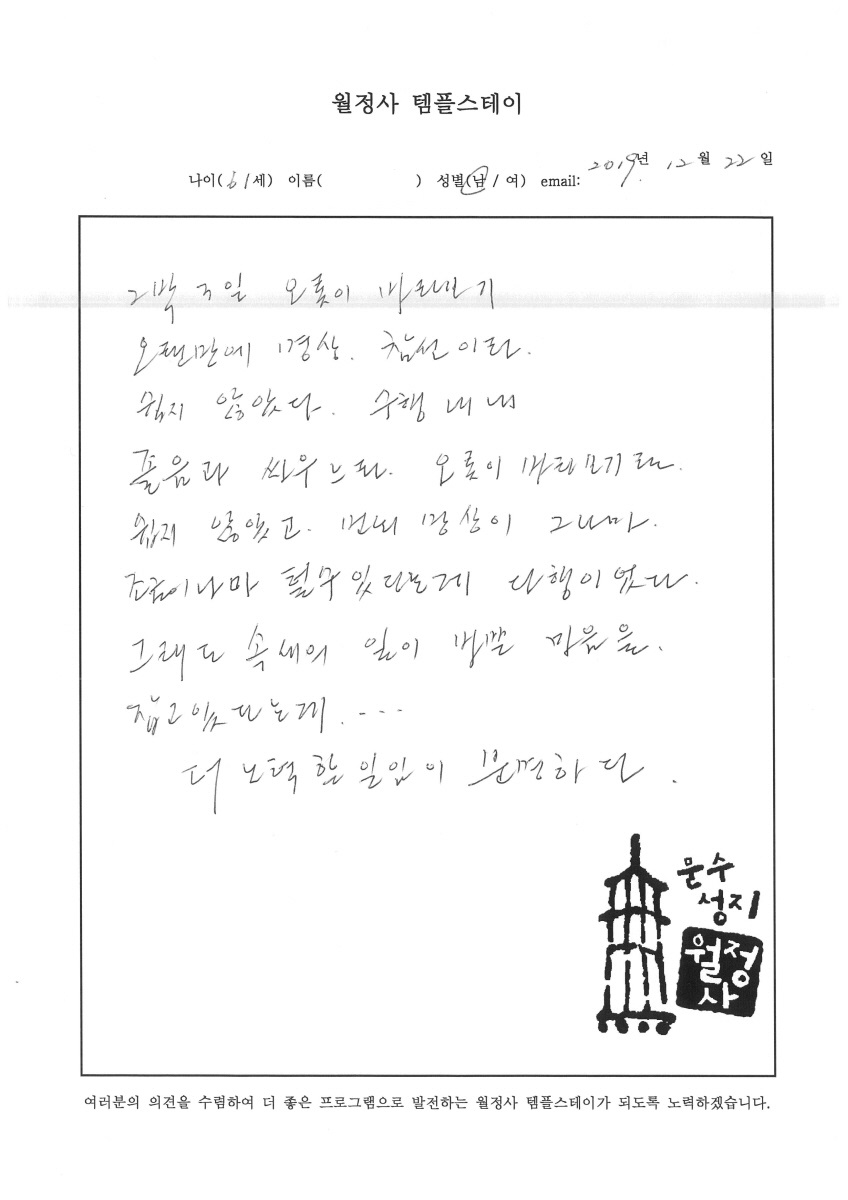 월정사 템플스테이
2019년 12월 22일
나이(61세) 이름( ) 성별(남 / 여) email:
2박 3일 오롯이 바라보기
오랜만에 명상. 참선이라.
쉽지 않았다. 수행 내내
졸음과 싸우느라. 오롯이 바라보기란.
쉽지 않았고. 번뇌 망상이 그나마.
조금이나마 덜수 있다는게 다행이었다.
그래도 속세의 일이 마음을.
잡고 있다는게. ----
더 노력할 일임이 분명하다.
문수
성지
월정
사
여러분의 의견을 수렴하여 더 좋은 프로그램으로 발전하는 월정사 템플스테이가 되도록 노력하겠습니다.